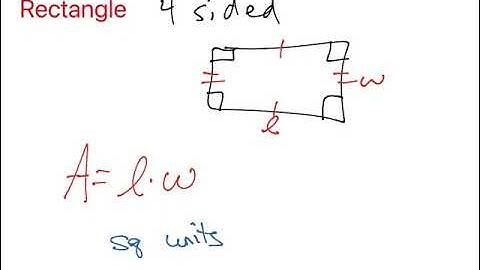 Rectangle 4 sided
w
l
A = l · w
sq units